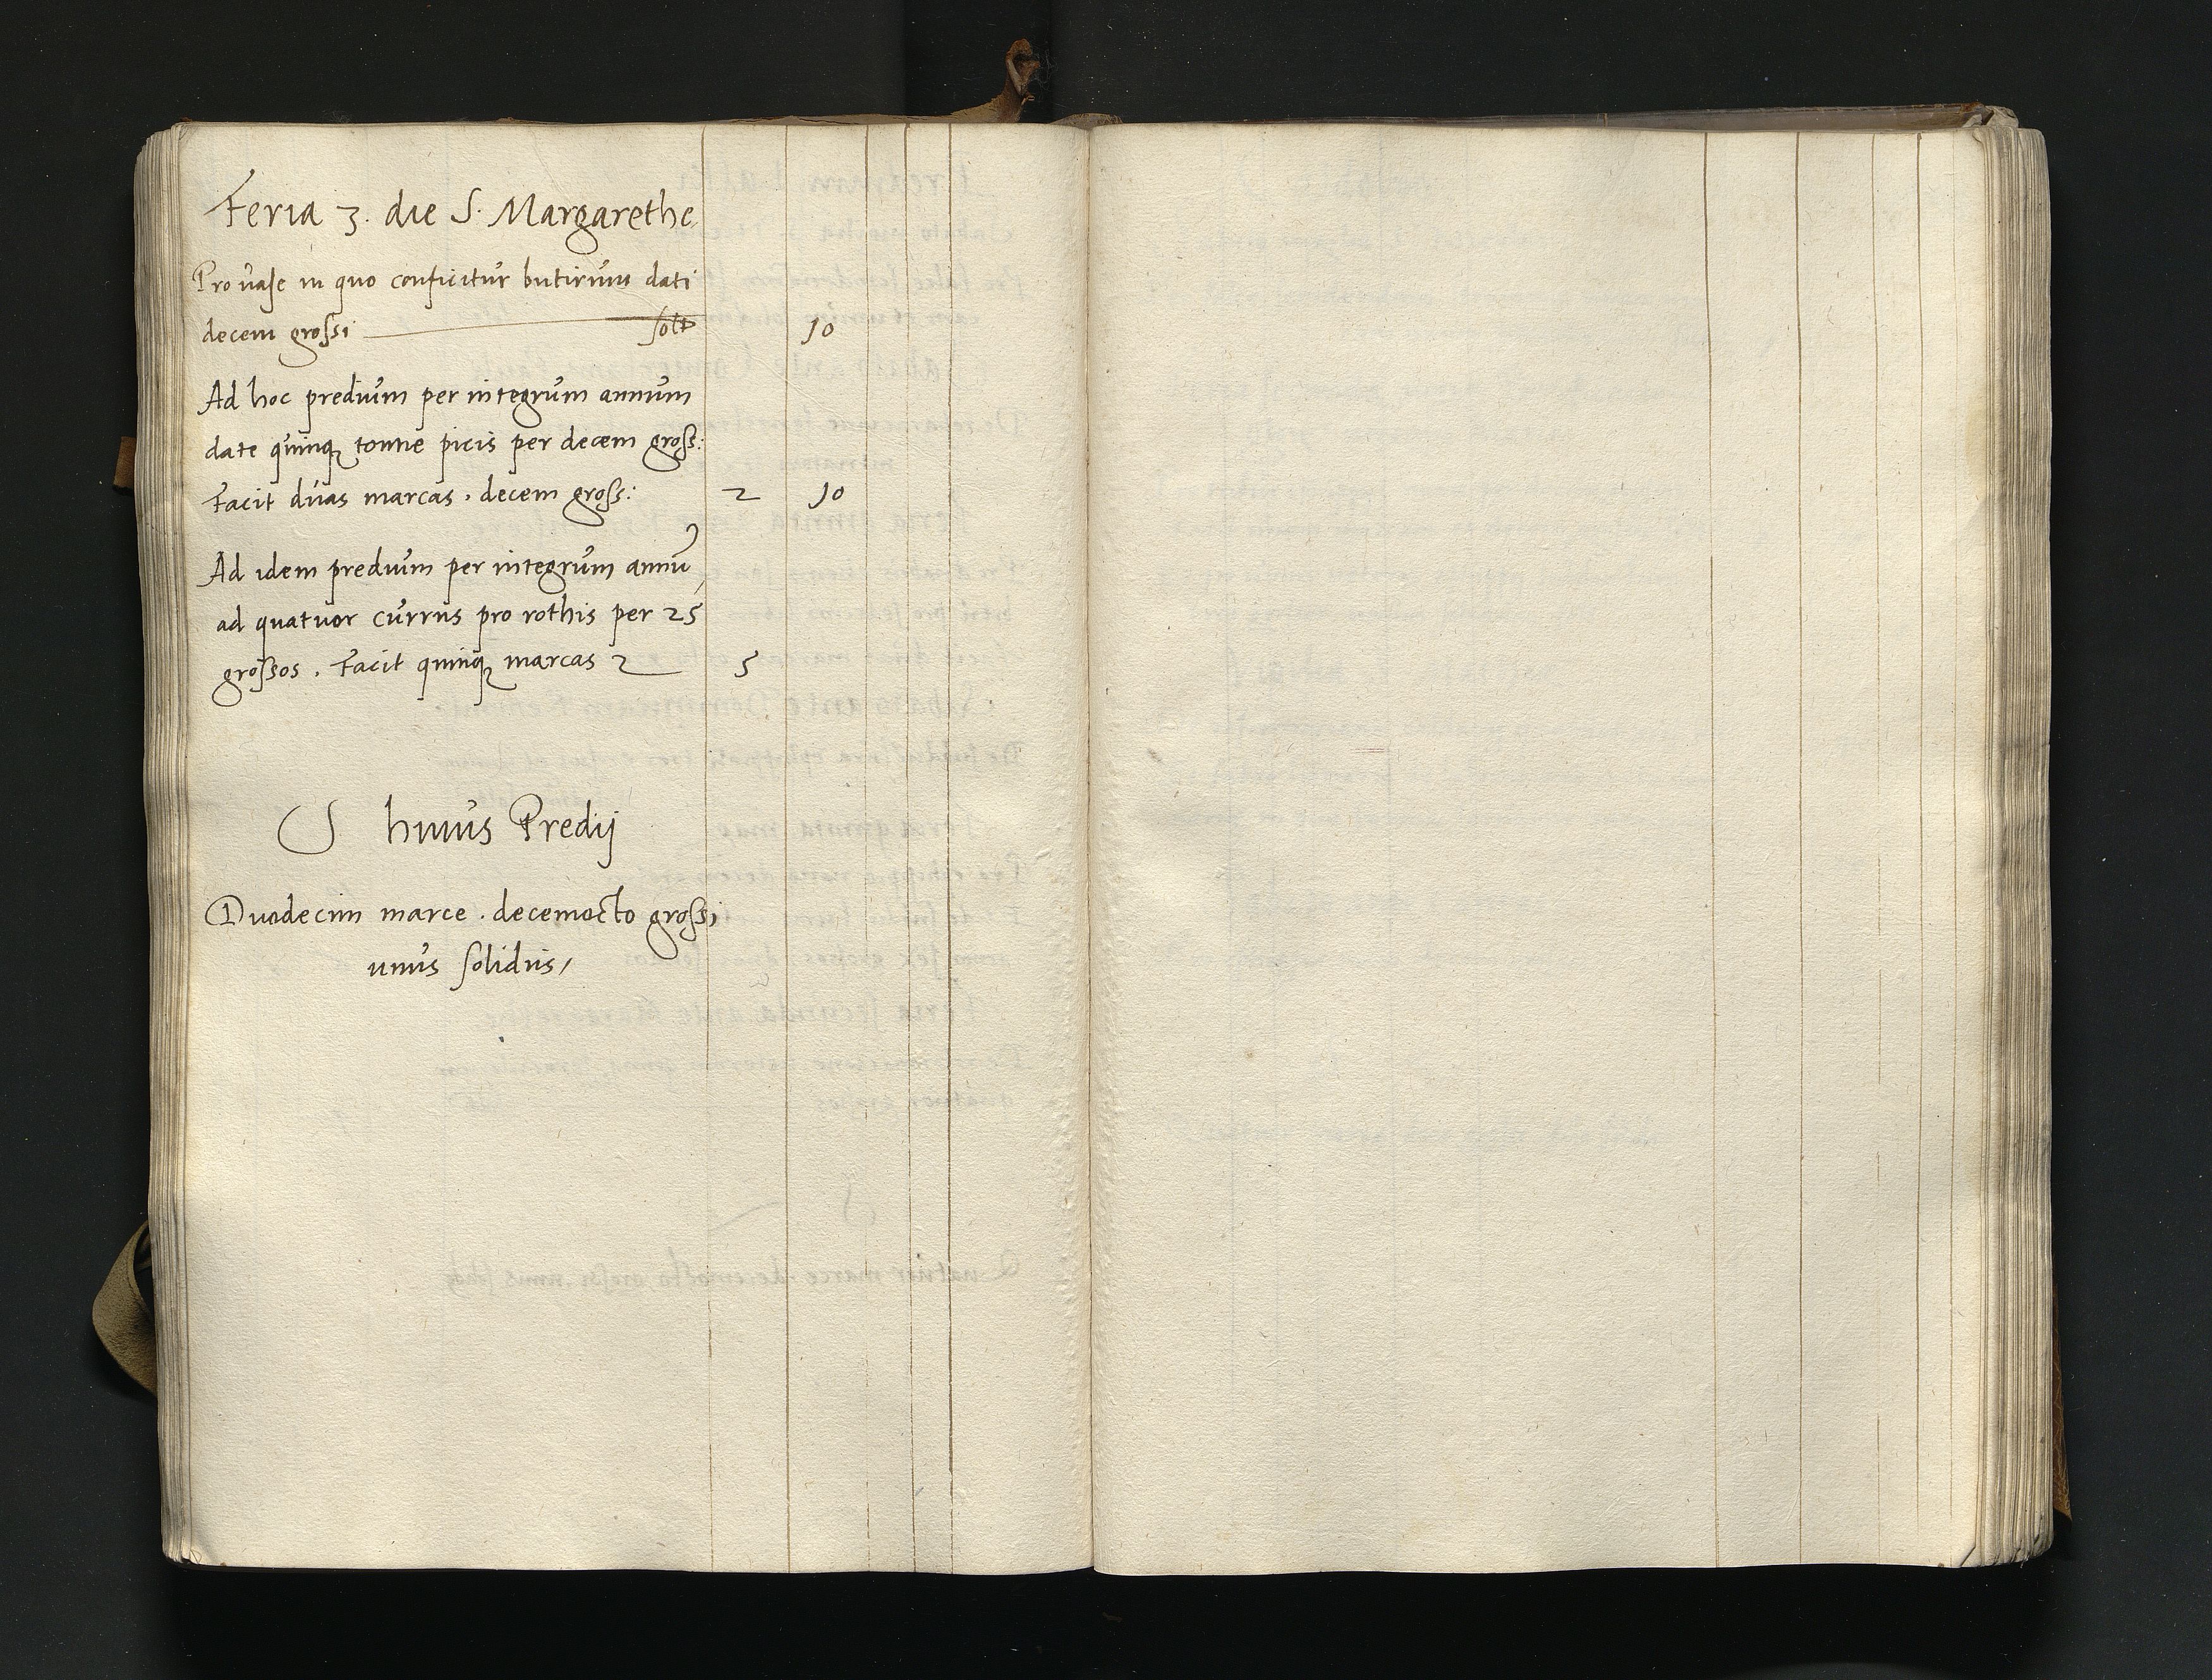 Feria 3. die S. Margarethe
Pro vase in quo conficitur butirum dati
decem grossi solt 10
Ad hoc predium per integrum annum
date quinq tonne picis per decem gross:
Facit duas marcas . decem gross: 2 10
Ad idem predium per integrum annu
ad quatuor currus pro rothis per 25
grossos . Facit quinq marcas 2 5
S huius Predij
Duodecim marce . decemocto grossi
unus solidus/